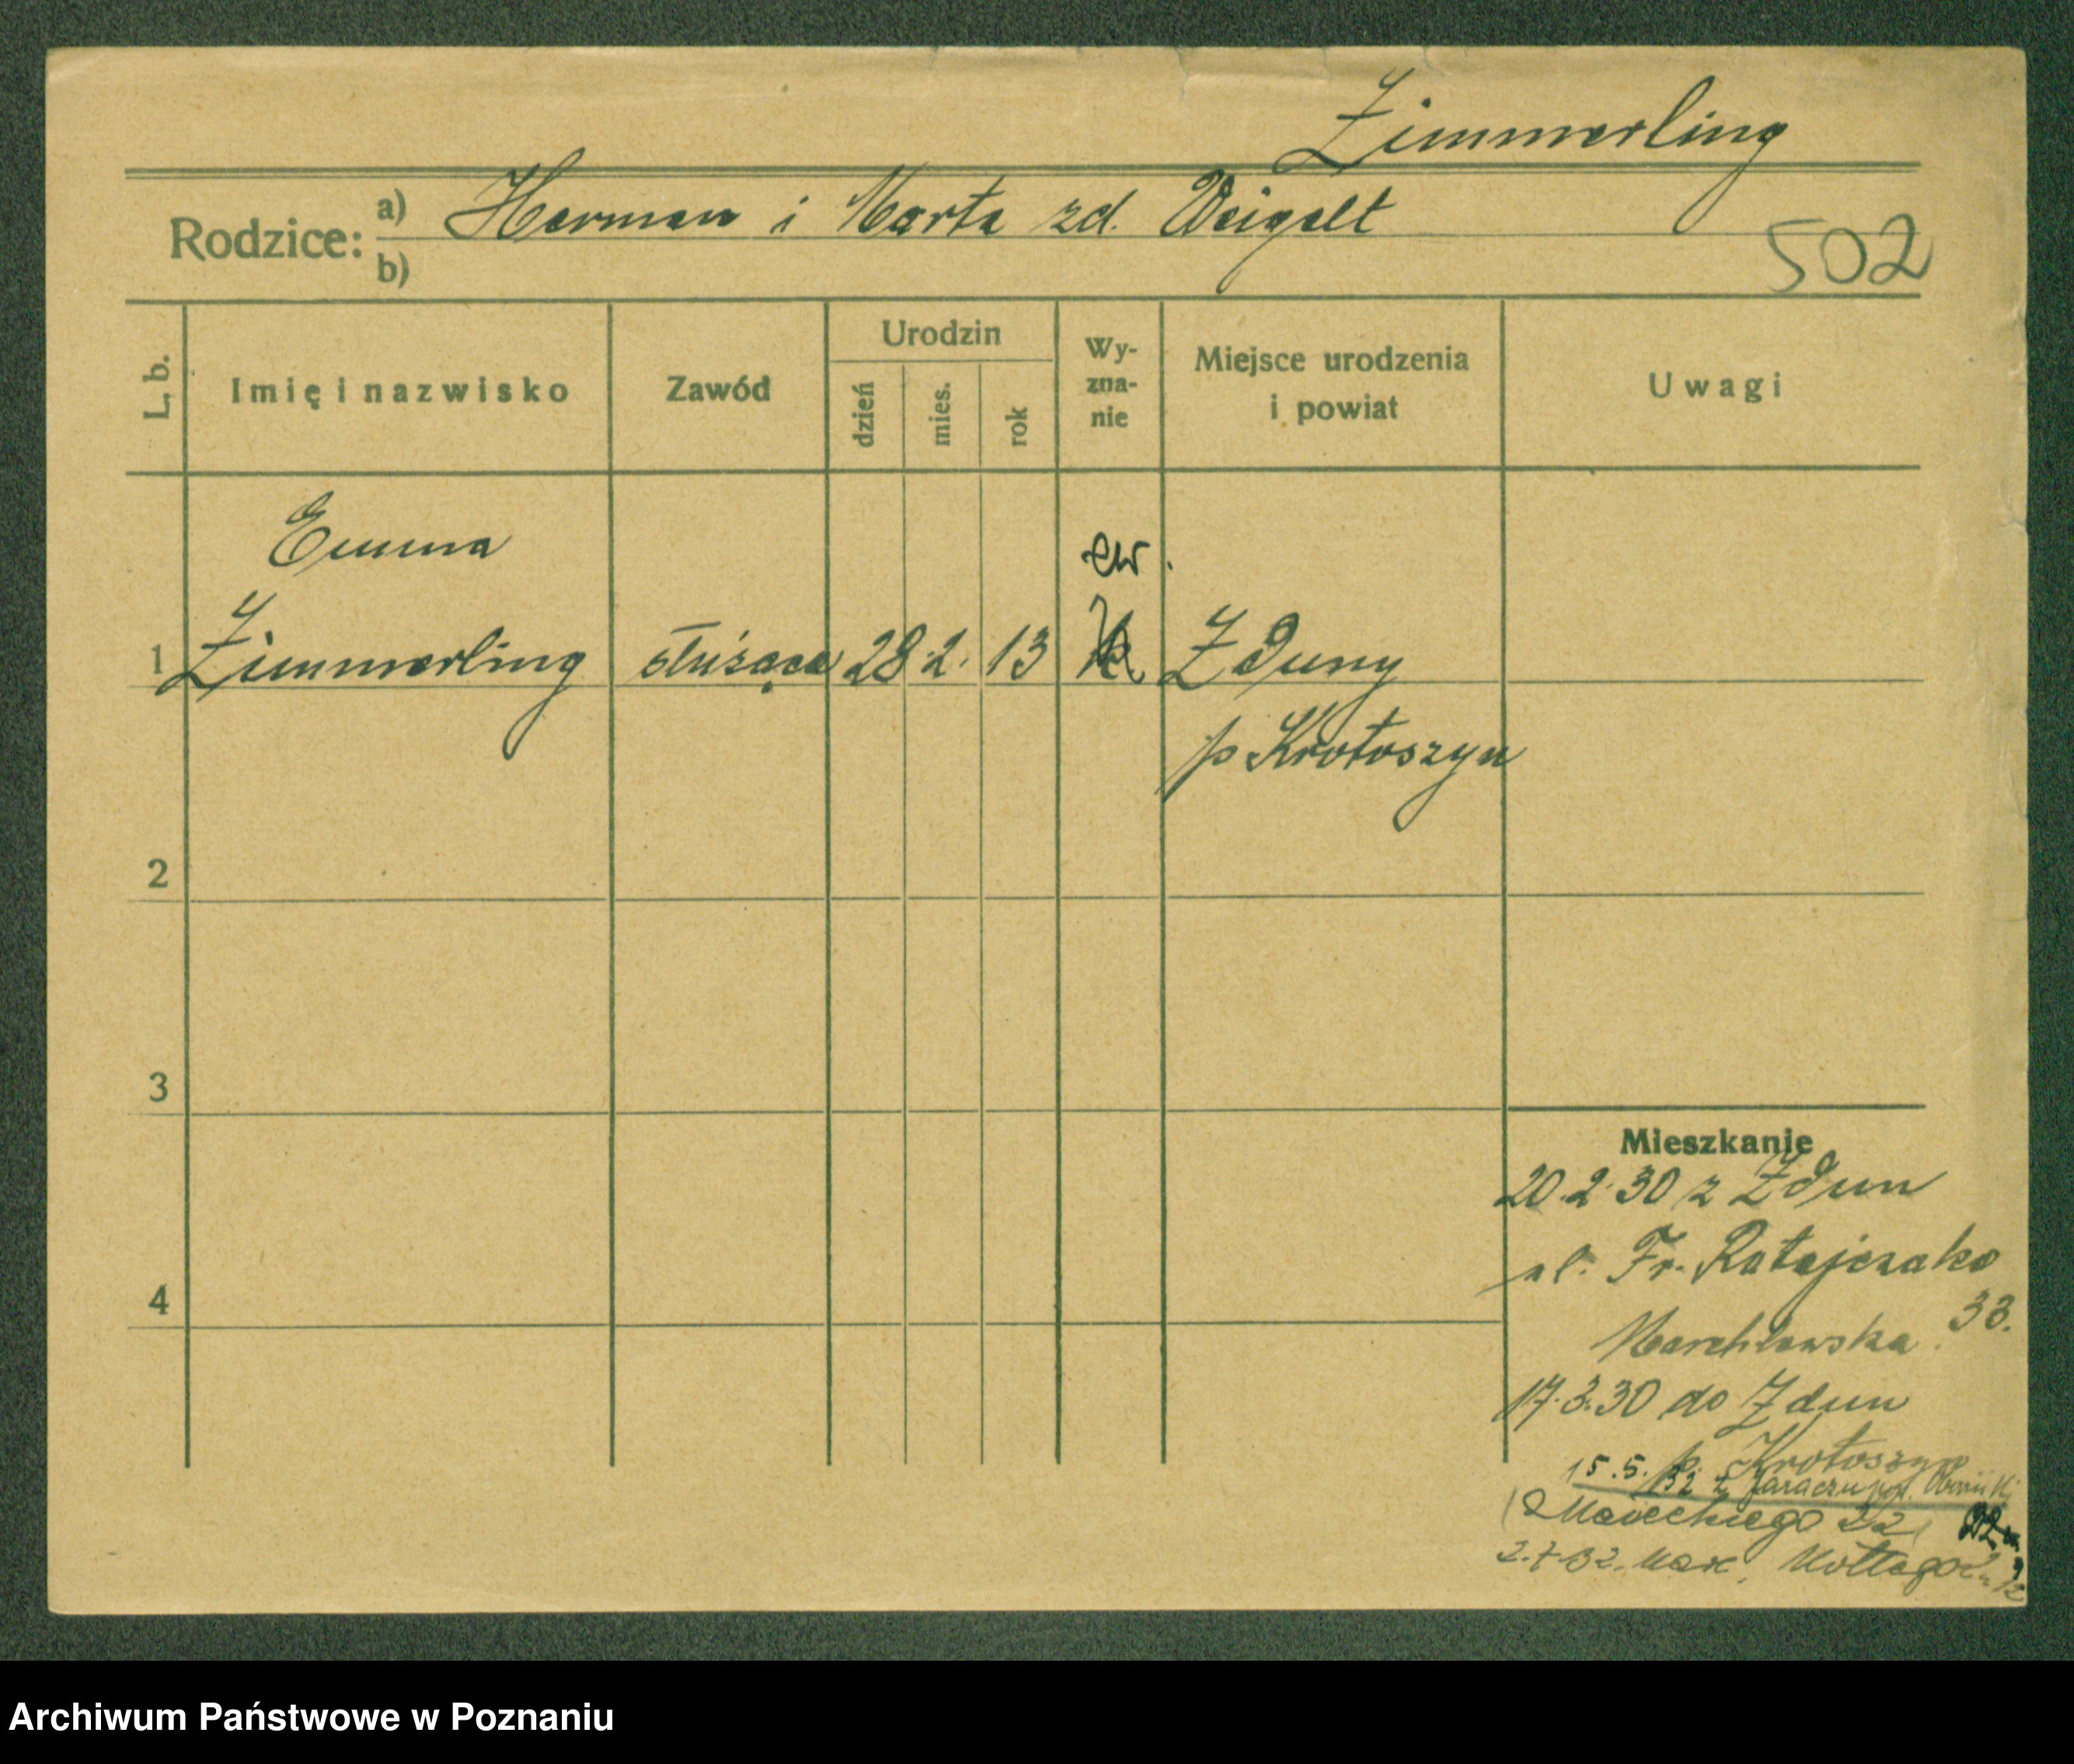 Zimmerling
Rodzice: a) Herman i Marta zd. Weigelt
b)
502
L. b.
Imię i nazwisko
Zawód
Urodzin
dzień
mies.
rok
Wy-
zna-
nie
Miejsce urodzenia
i powiat
Uwagi
Emma
ew.
1 Zimmerling służąca 28 2. 13 Zduny
p Krotoszyn
2
3
4
Mieszkanie
20.2.30 z Zdun
ul. Fr. Ratajczaka
33.
Marchlewska
17.3.30 do Zdun
p. Krotoszyn
15.5.32 z Jaraczu
Małeckiego 22
2.7.32.
Archiwum Państwowe w Poznaniu